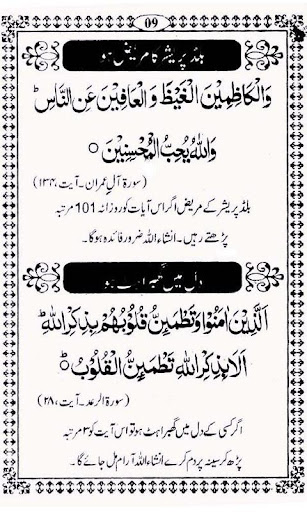 09
بلڈ پریشر کا مریض ہو
وَالْكَاظِمِيْنَ الْغَيْظَ وَالْعَافِيْنَ عَنِ النَّاسِ ط
وَاللهُ يُحِبُّ الْمُحْسِنِيْنَ ○
(سورۃ آل عمران۔ آیت، ۱۳۴)
بلڈ پریشر کے مریض اگر اس آیات کو روزانہ 101 مرتبہ
پڑھتے رہیں۔ انشاء اللہ ضرور فائدہ ہوگا۔
دل میں گھبراہٹ ہو
اَلَّذِيْنَ اٰمَنُوْا وَتَطْمَئِنُّ قُلُوْبُهُمْ بِذِكْرِ اللهِ ط
اَلَا بِذِكْرِ اللهِ تَطْمَئِنُّ الْقُلُوْبُ ○ ط
(سورۃ الرعد۔ آیت، ۲۸)
اگر کسی کے دل میں گھبراہٹ ہو تو اس آیت کو ۳ مرتبہ
پڑھ کر سینہ پر دم کرے انشاء اللہ آرام مل جائے گا۔